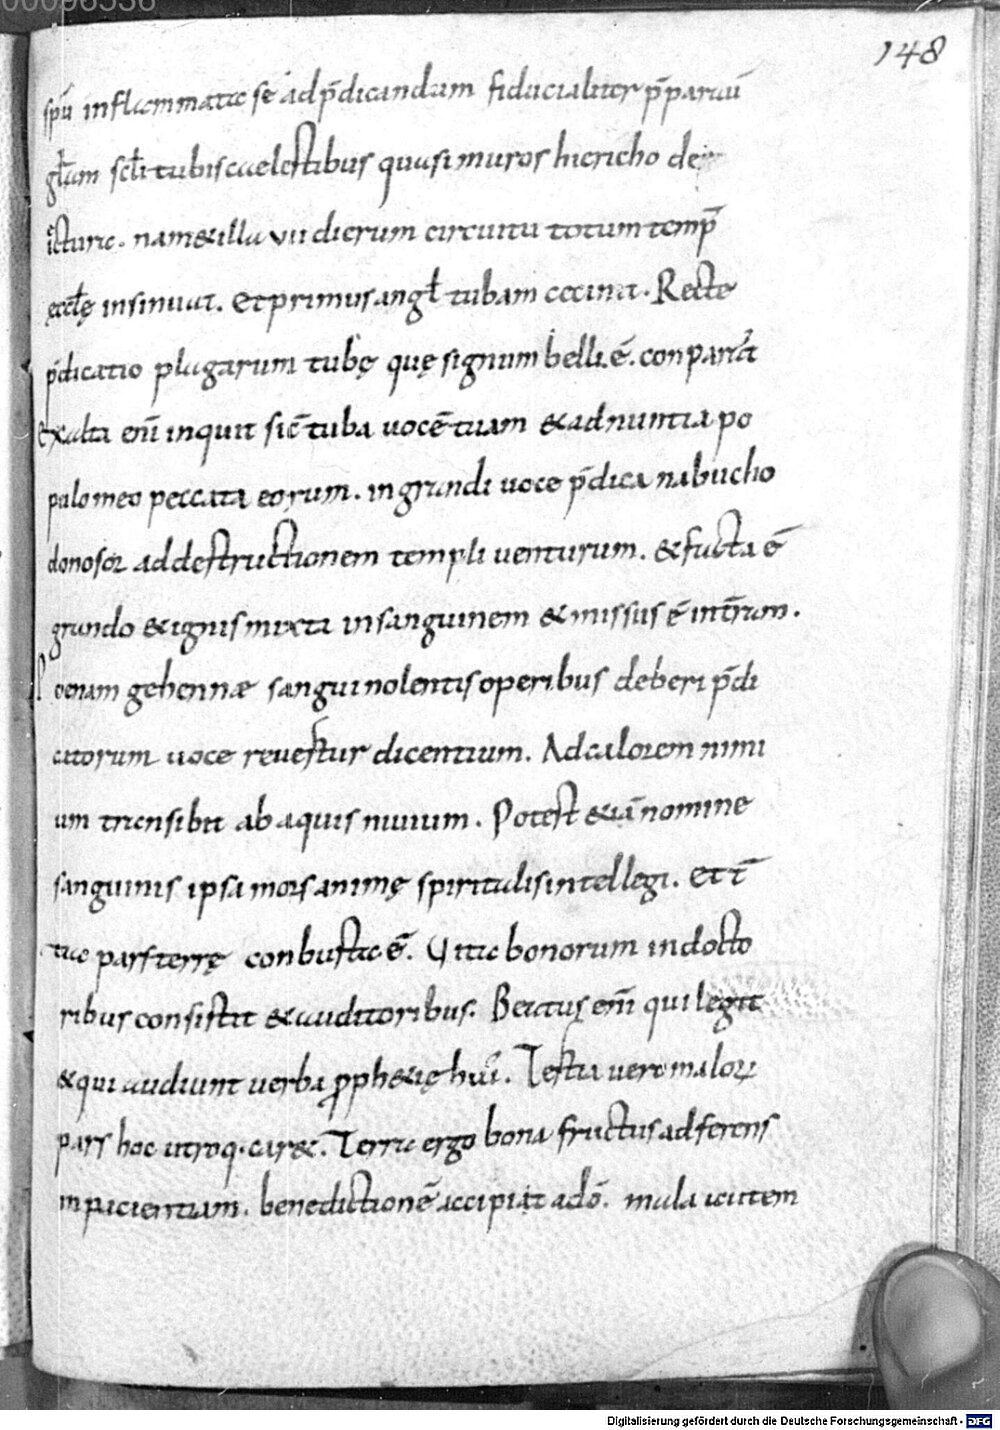 00096536
148
spū inflammatae sē ad p̄dicandum fiducialiter p̄paraui
gl̄am scl̄i tubis caelestibus quasi muros hiericho de
icturae. nam & illa uii dierum circuitu totum temp̄
ęccl̄ę insinuat. Et primus angl̄ tubam cecinit. Recte
p̄dicatio plagarum tubę quę signum belli ē. conparat̄
Exalta enī inquit sic̄ tuba uocē tuam & adnuntia po
pulo meo peccata eorum. in grandi uoce p̄dica nabucho
donosor ad destructionem templi uenturum. & facta ē
grando & ignis mixta in sanguinem & missus ē in tr̄am.
Poenam gehennae sanguinolentis operibus deberi p̄di
catorum uoce reuestur dicentium. Ad calorem nimi
um transibit ab aquis niuium. Potest & iā nomine
sanguinis ipsa mors animę spiritalis intellegi. Et t̄
tia pars terrę conbusta ē. Uita bonorum in docto
ribus consistit & auditoribus. Beatus enī qui legit
& qui audiunt uerba ꝓph&ię hui'. Testa uero maloꝝ
pars hoc utroq· car&. Terra ergo bona fructus adferens
in pacientiam. benedictionē accipiat a dō. mala autem
Digitalisierung gefördert durch die Deutsche Forschungsgemeinschaft - DFG